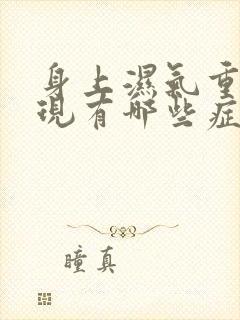 身上濕氣重
現有哪些症
瞳真